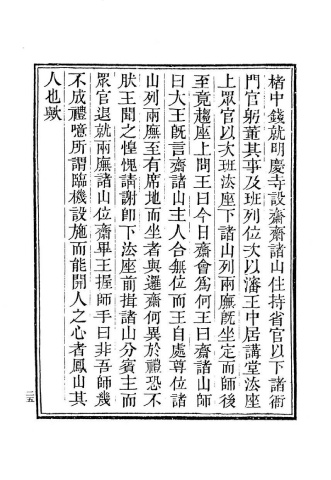 楮中錢就明慶寺設齋齋諸山住持省官以下諸衙
門官躬董其事及班列位次以瀋王中居講堂法座
上眾官以次班法座下諸山列兩廡旣坐定而師後
至竟趨座上問王曰今日齋會為何王曰齋諸山師
曰大王旣言齋諸山主人合無位而王自處尊位諸
山列兩廡至有席地而坐者與邏齋何異於禮恐不
肰王聞之惶愧請謝卽下法座前揖諸山分賓主而
眾官退就兩廡諸山位齋畢王握師手曰非吾師幾
不成禮噫所謂臨機設施而能開人之心者鳳山其
人也歟
二五